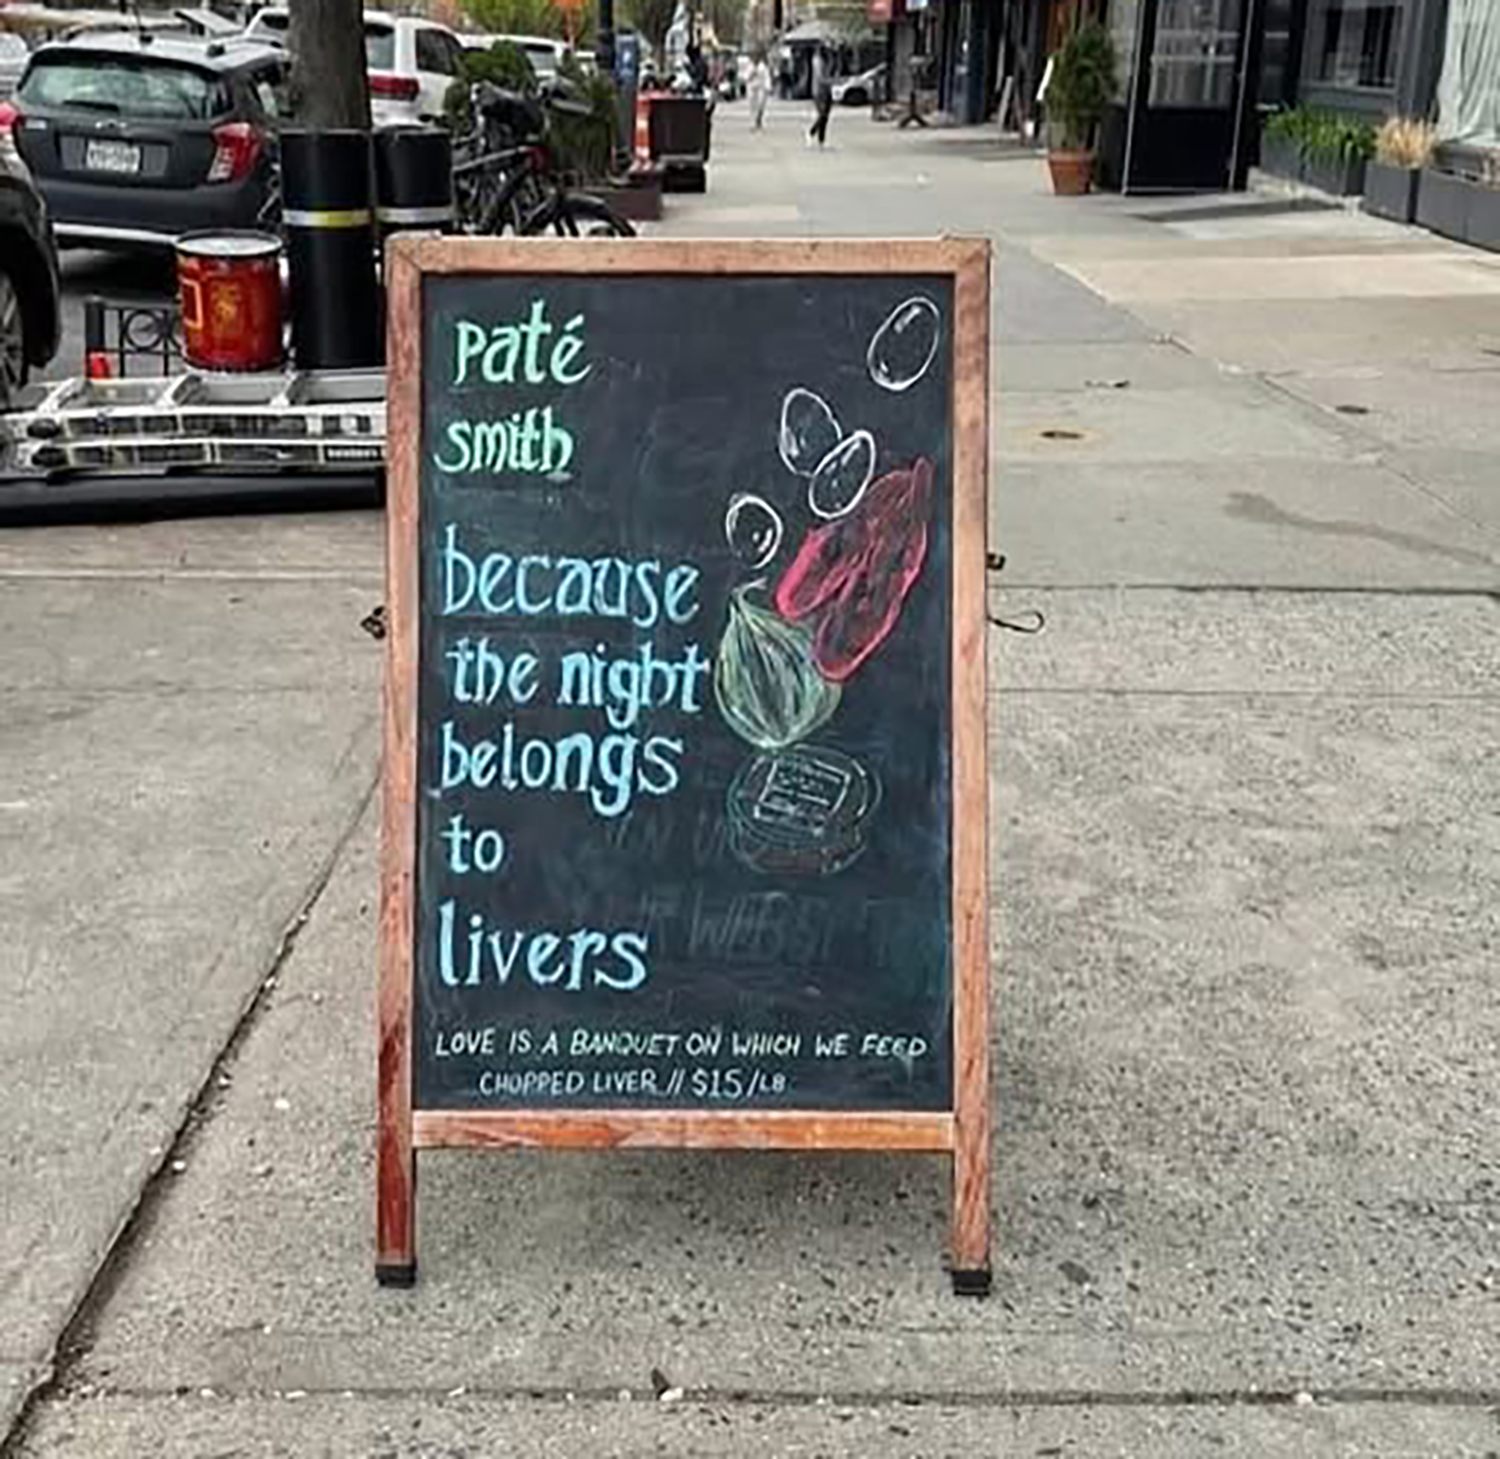 paté
smith
because
the night
belongs
to
livers
LOVE IS A BANQUET ON WHICH WE FEED
CHOPPED LIVER // $15/LB